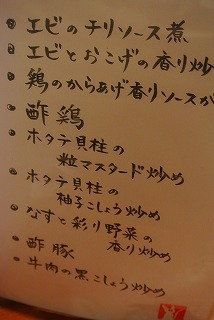 エビのチリソース煮
エビとおこげの香り炒
鶏のからあげ香りソースが
酢鶏
ホタテ貝柱の
粒マスタード炒め
ホタテ貝柱の
柚子こしょう炒め
なすと彩り野菜の
香り炒め
酢豚
牛肉の黒こしょう炒め